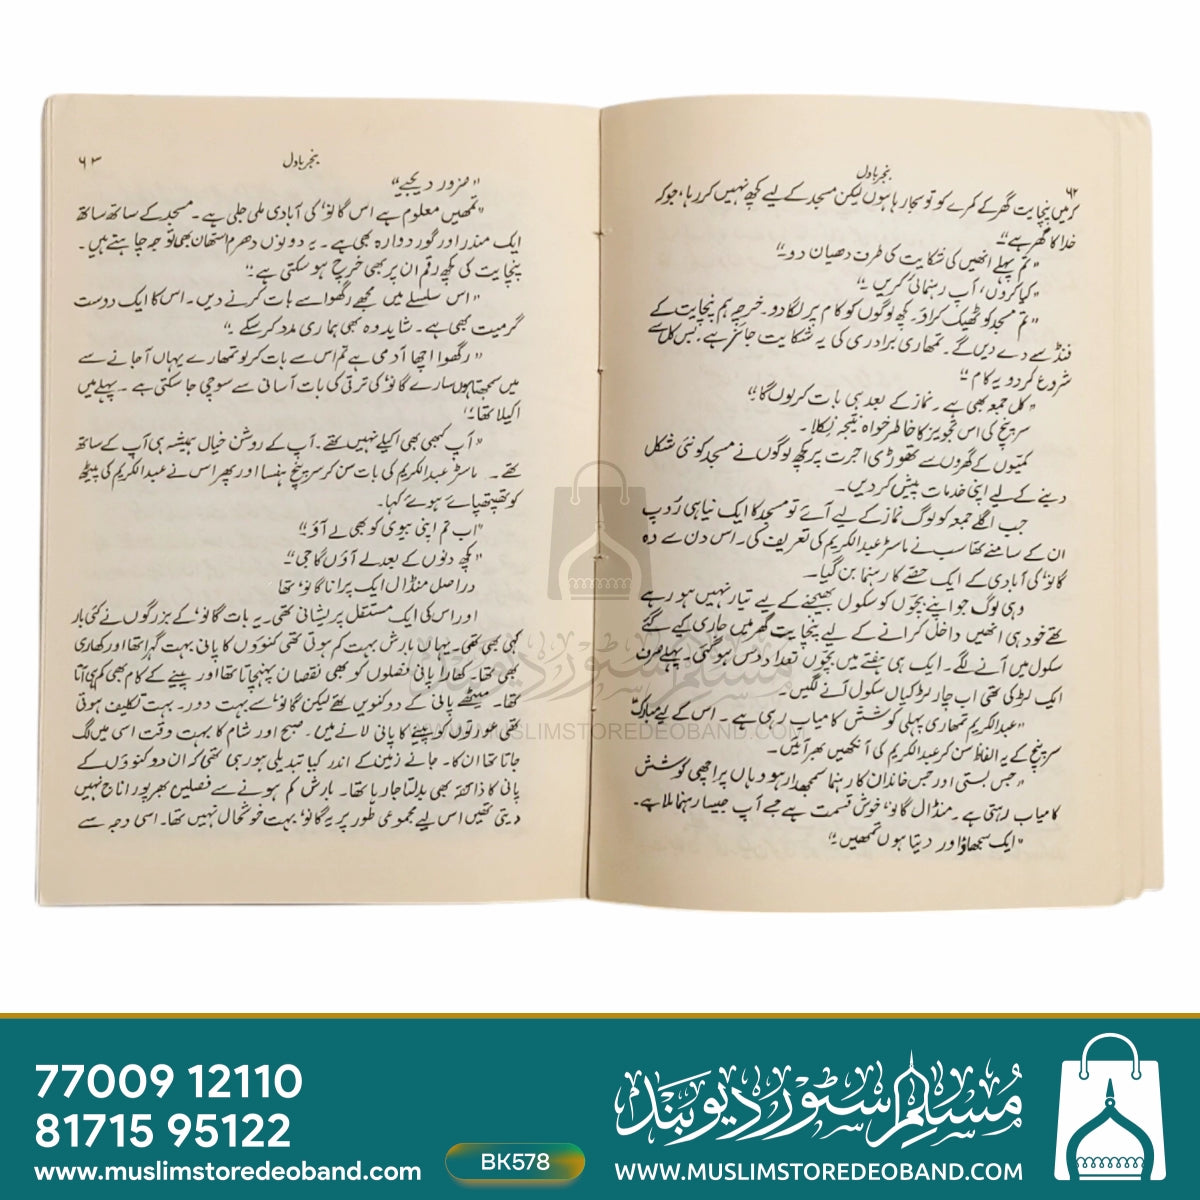 ۶۲
بنجر بادل
کر میں پنچایت گھر کے کمرے کو تو سجا رہا ہوں لیکن مسجد کے لیے کچھ نہیں کر رہا، جو کہ
خدا کا گھر ہے"
"تم پہلے انھیں کی شکایت کی طرف دھیان دو"
"کیا کروں، آپ رہنمائی کریں"
"تم مسجد کو ٹھیک کراؤ۔ کچھ لوگوں کو کام پر لگا دو۔ خرچہ ہم پنچایت کے
فنڈ سے دے دیں گے۔ تمھاری برادری کی یہ شکایت جائز ہے، بس کل سے
شروع کر دو یہ کام"
"کل جمعہ بھی ہے۔ نماز کے بعد ہی بات کر لوں گا"
سرپنچ کی اس تجویز کا خاطر خواہ نتیجہ نکلا۔
کمیّوں کے گھروں سے تھوڑی اجرت پر کچھ لوگوں نے مسجد کو نئی شکل
دینے کے لیے اپنی خدمات پیش کر دیں۔
جب اگلے جمعہ کو لوگ نماز کے لیے آئے تو مسجد کا ایک نیا ہی رُوپ
ان کے سامنے تھا سب نے ماسٹر عبدالکریم کی تعریف کی۔ اس دن سے وہ
گانو کی آبادی کے ایک حصّے کا رہنما بن گیا۔
وہی لوگ جو اپنے بچّوں کو سکول بھیجنے کے لیے تیار نہیں ہو رہے
تھے خود ہی انھیں داخل کرانے کے لیے پنچایت گھر میں جاری کیے گئے
سکول میں آنے لگے۔ ایک ہی ہفتے میں بچّوں تعداد دس ہو گئی۔ پہلے صرف
ایک لڑکی تھی اب چار لڑکیاں سکول آنے لگیں۔
"عبدالکریم تمھاری پہلی کوشش کامیاب رہی ہے۔ اس کے لیے مبارک"
سرپنچ کے یہ الفاظ سن کر عبدالکریم کی آنکھیں بھر آئیں۔
"جس بستی اور جس خاندان کا رہنما سمجھدار ہو وہاں پر اچھی کوشش
کامیاب رہتی ہے۔ منڈال گانو خوش قسمت ہے جسے آپ جیسا رہنما ملا ہے۔
"ایک سمجھاؤ اور دیتا ہوں تمھیں"
۶۳
بنجر بادل
"ضرور دیجیے"
"تمھیں معلوم ہے اس گانو کی آبادی ملی جلی ہے۔ مسجد کے ساتھ ساتھ
ایک مندر اور گوردوارہ بھی ہے۔ یہ دونوں دھرم استھان بھی توجہ چاہتے ہیں۔
پنچایت کی کچھ رقم ان پر بھی خرچ ہو سکتی ہے"
"اس سلسلے میں مجھے رگھوا سے بات کرنے دیں۔ اس کا ایک دوست
گرمیت بھی ہے۔ شاید وہ بھی ہماری مدد کر سکے"
"رگھوا اچھا آدمی ہے تم اس سے بات کر لو تمھارے یہاں آ جانے سے
میں سمجھتا ہوں سارے گانو کی ترقی کی بات آسانی سے سوچی جا سکتی ہے۔ پہلے میں
اکیلا تھا"
"آپ کبھی بھی اکیلے نہیں تھے۔ آپ کے روشن خیال ہمیشہ ہی آپ کے ساتھ
تھے۔ ماسٹر عبدالکریم کی بات سن کر سرپنچ ہنسا اور پھر اس نے عبدالکریم کی پیٹھ
کو تھپتھپاتے ہوئے کہا۔
"اب تم اپنی بیوی کو بھی لے آؤ"
"کچھ دنوں کے بعد لے آؤں گا جی"
دراصل منڈال ایک پرانا گانو تھا
اور اس کی ایک مستقل پریشانی تھی۔ یہ بات گانو کے بزرگوں نے کئی بار
کہی بھی تھی۔ یہاں بارش بہت کم ہوتی تھی کنوؤں کا پانی بہت گہرا تھا اور کھاری
بھی تھا۔ کھارا پانی فصلوں کو بھی نقصان پہنچاتا تھا اور پینے کے کام بھی کم ہی آتا
تھا۔ میٹھے پانی کے دو کنویں تھے لیکن گانو سے بہت دور۔ بہت تکلیف ہوتی
تھی عورتوں کو پینے کا پانی لانے میں۔ صبح اور شام کا بہت وقت اسی میں لگ
جاتا تھا ان کا۔ جانے زمین کے اندر کیا تبدیلی ہو رہی تھی کہ ان دو کنوؤں کے
پانی کا ذائقہ بھی بدلتا جا رہا تھا۔ بارش کم ہونے سے فصلیں بھرپور اناج نہیں
دیتی تھیں اس لیے مجموعی طور پر یہ گانو بہت خوشحال نہیں تھا۔ اسی وجہ سے
مسلم سٹور دیوبند
WWW.MUSLIMSTOREDEOBAND.COM
77009 12110
81715 95122
www.muslimstoredeoband.com
BK578
مسلم سٹور دیوبند
WWW.MUSLIMSTOREDEOBAND.COM